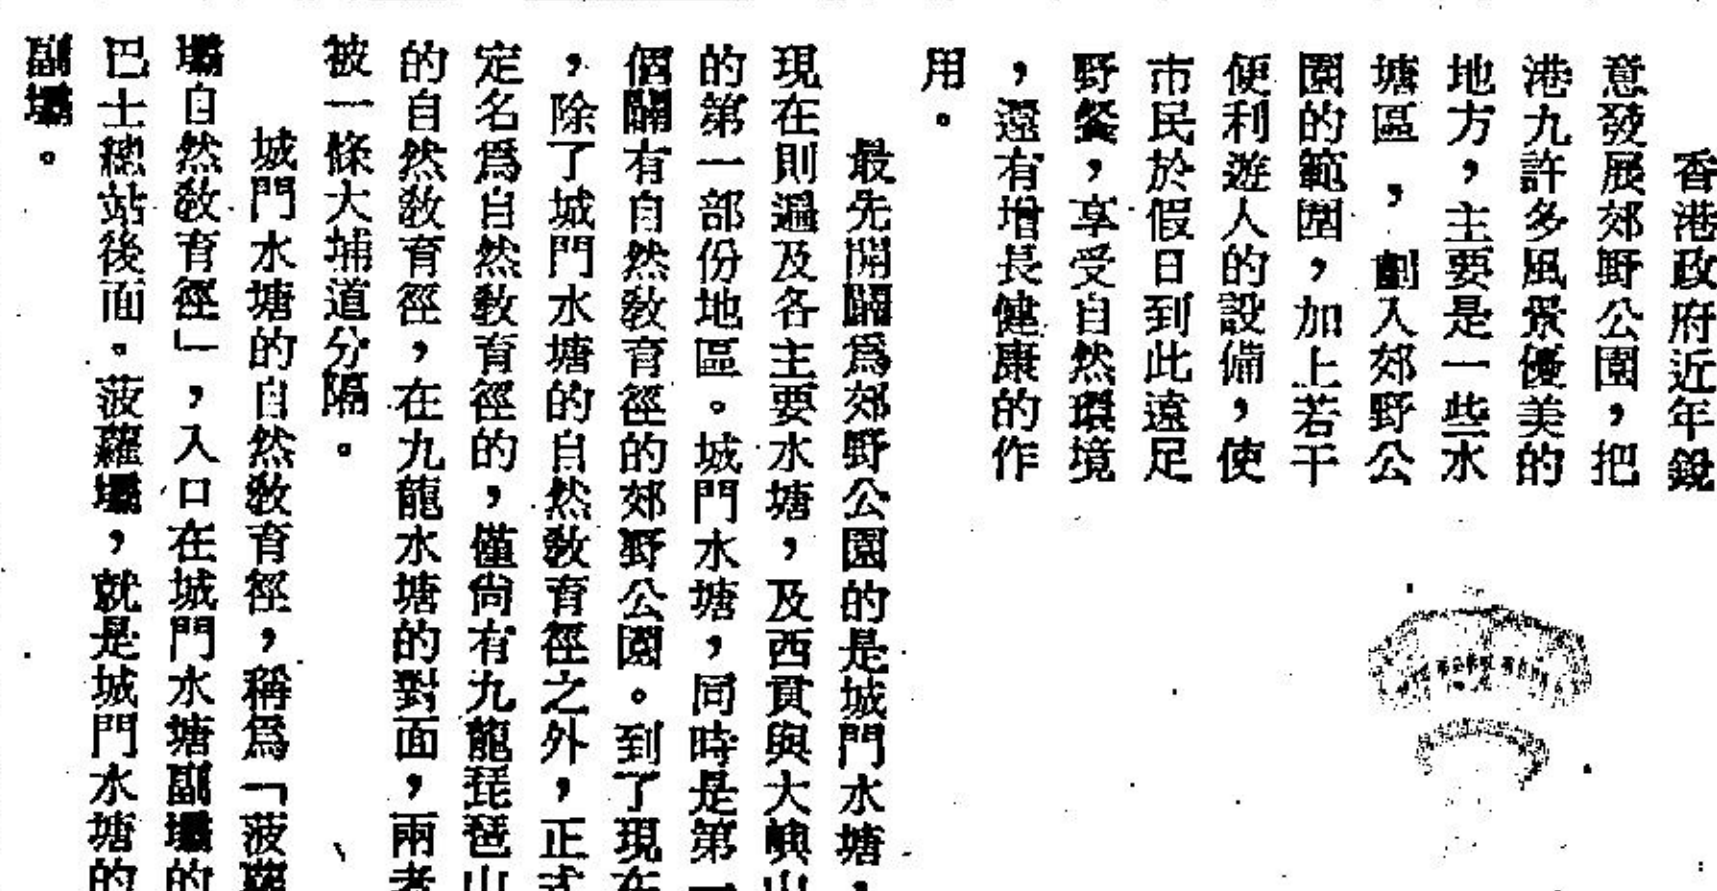 香港政府近年銳
意發展郊野公園，把
港九許多風景優美的
地方，主要是一些水
塘區，劃入郊野公
園的範圍，加上若干
便利遊人的設備，使
市民於假日到此遠足
野餐，享受自然環境
，還有增長健康的作
用。
最先開闢爲郊野公園的是城門水塘，
現在則遍及各主要水塘，及西貢與大嶼山
的第一部份地區。城門水塘，同時是第一
個闢有自然敎育徑的郊野公園。到了現在
，除了城門水塘的自然敎育徑之外，正式
定名爲自然敎育徑的，僅尙有九龍琵琶山
的自然敎育徑，在九龍水塘的對面，兩者
被一條大埔道分隔。
城門水塘的自然敎育徑，稱爲「菠蘿
壩自然敎育徑」，入口在城門水塘副壩的
巴士總站後面。菠蘿壩，就是城門水塘的
副壩。